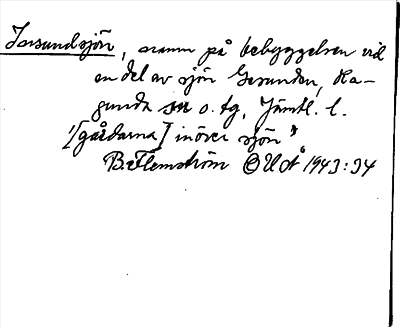 Isesundsjön, namn på bebyggelsen vid
en del av sjön Gesunden, Ra-
gunda sn o. tg, Jämtl. l.
"[gårdarna] inöver sjön"
B. Flemström OUÅ 1943:34